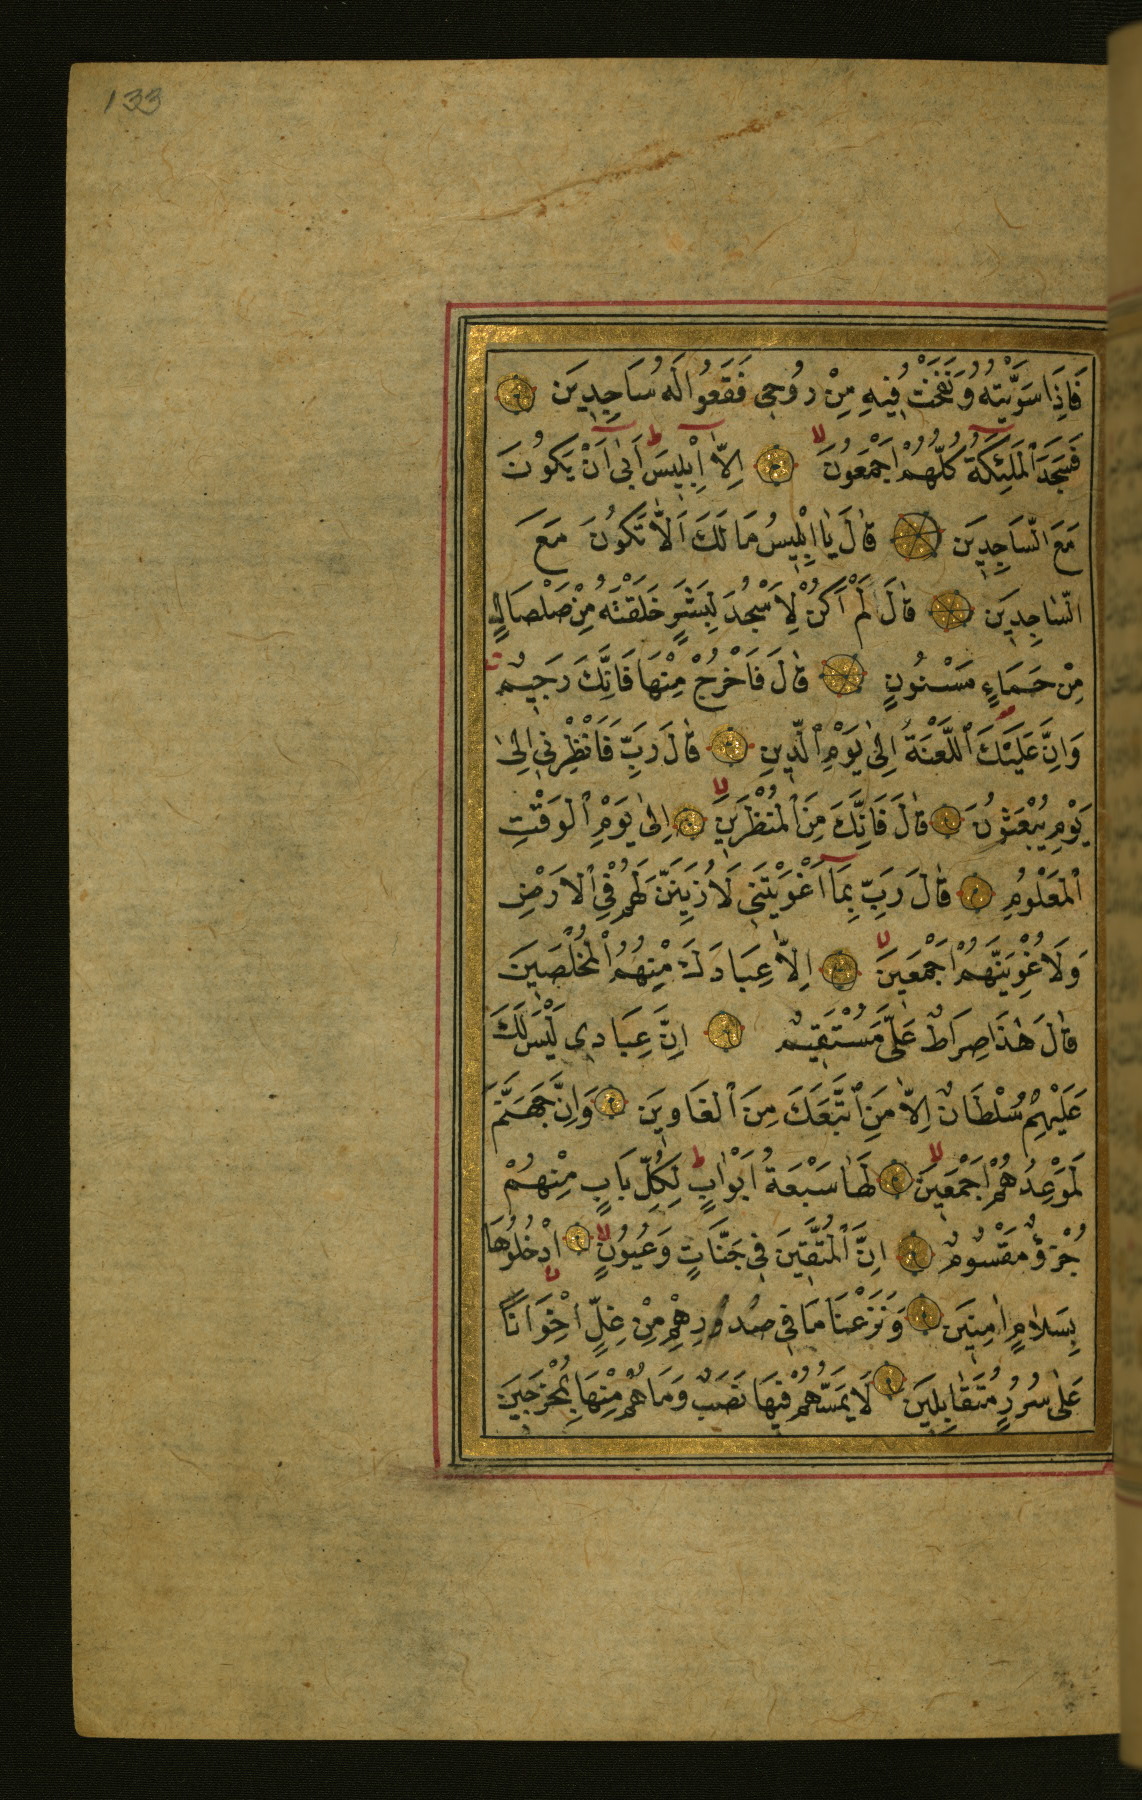 133
فَاِذَا سَوَّيْتُهُ وَنَفَخْتُ فِيهِ مِنْ رُوحِي فَقَعُوا لَهُ سَاجِدِينَ
فَسَجَدَ ٱلْمَلٰئِكَةُ كُلُّهُمْ اَجْمَعُونَ اِلَّا اِبْلِيسَ اَبٰى اَنْ يَكُونَ
مَعَ السَّاجِدِينَ قَالَ يَا اِبْلِيسُ مَا لَكَ اَلَّا تَكُونَ مَعَ
السَّاجِدِينَ قَالَ لَمْ اَكُنْ لِاَسْجُدَ لِبَشَرٍ خَلَقْتَهُ مِنْ صَلْصَالٍ
مِنْ حَمَاءٍ مَسْنُونٍ قَالَ فَاخْرُجْ مِنْهَا فَاِنَّكَ رَجِيمٌ
وَاِنَّ عَلَيْكَ ٱللَّعْنَةَ اِلٰى يَوْمِ ٱلدِّينِ قَالَ رَبِّ فَاَنْظِرْنِي اِلٰى
يَوْمِ يُبْعَثُونَ قَالَ فَاِنَّكَ مِنَ ٱلْمُنْظَرِينَ اِلٰى يَوْمِ ٱلْوَقْتِ
ٱلْمَعْلُومِ قَالَ رَبِّ بِمَا اَغْوَيْتَنِي لَاُزَيِّنَنَّ لَهُمْ فِي ٱلْاَرْضِ
وَلَاُغْوِيَنَّهُمْ اَجْمَعِينَ اِلَّا عِبَادَكَ مِنْهُمُ ٱلْمُخْلَصِينَ
قَالَ هٰذَا صِرَاطٌ عَلَيَّ مُسْتَقِيمٌ اِنَّ عِبَادِي لَيْسَ لَكَ
عَلَيْهِمْ سُلْطَانٌ اِلَّا مَنِ ٱتَّبَعَكَ مِنَ ٱلْغَاوِينَ وَاِنَّ جَهَنَّمَ
لَمَوْعِدُهُمْ اَجْمَعِينَ لَهَا سَبْعَةُ اَبْوَابٍ لِكُلِّ بَابٍ مِنْهُمْ
جُزْءٌ مَقْسُومٌ اِنَّ ٱلْمُتَّقِينَ فِي جَنَّاتٍ وَعُيُونٍ اُدْخُلُوهَا
بِسَلَامٍ اٰمِنِينَ وَنَزَعْنَا مَا فِي صُدُورِهِمْ مِنْ غِلٍّ اِخْوَانًا
عَلٰى سُرُرٍ مُتَقَابِلِينَ لَا يَمَسُّهُمْ فِيهَا نَصَبٌ وَمَا هُمْ مِنْهَا بِمُخْرَجِينَ